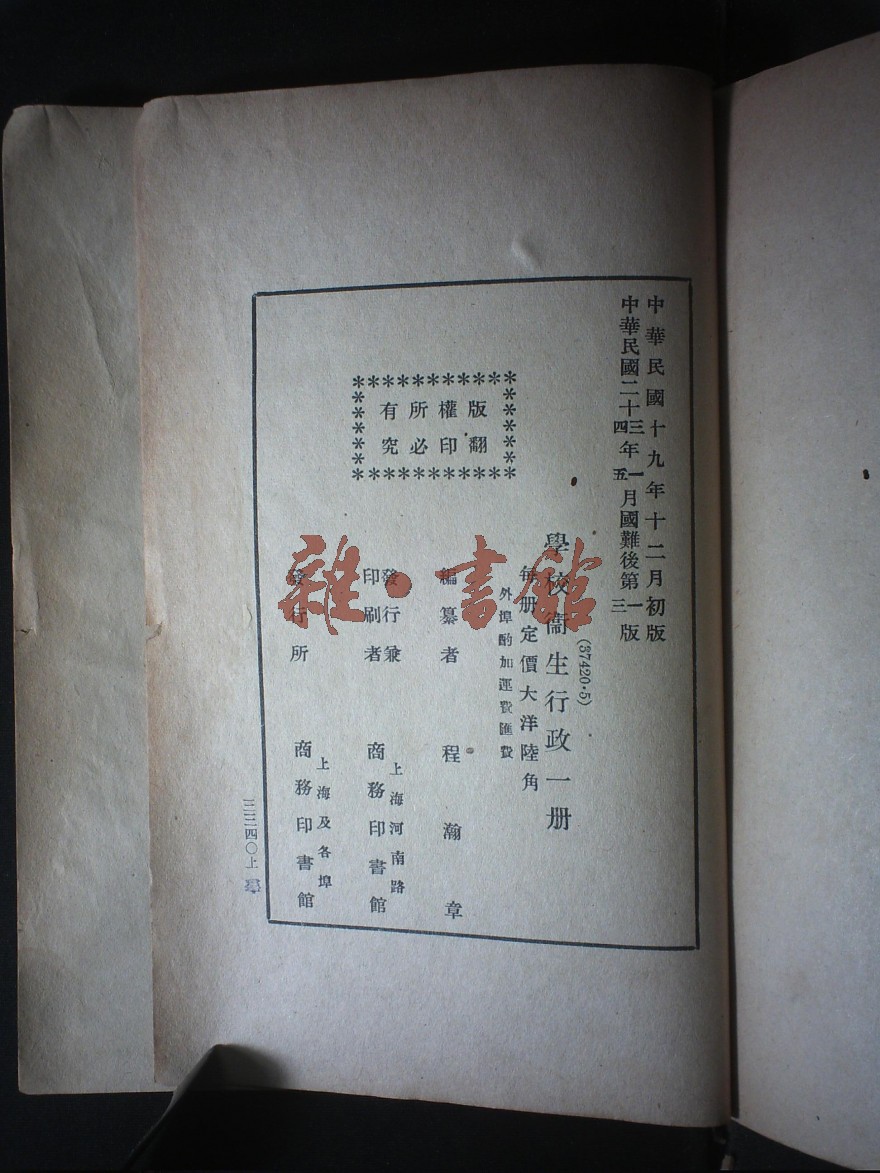 中華民國十九年十二月初版
中華民國二十三四年一五月國難後第一三版
(37420·5)
學校衞生行政一册
每册定價大洋陸角
外埠酌加運費匯費
版權所有
翻印必究
編纂者 程瀚章
發行兼印刷者 上海河南路 商務印書館
發行所 上海及各埠 商務印書館
雜·書館